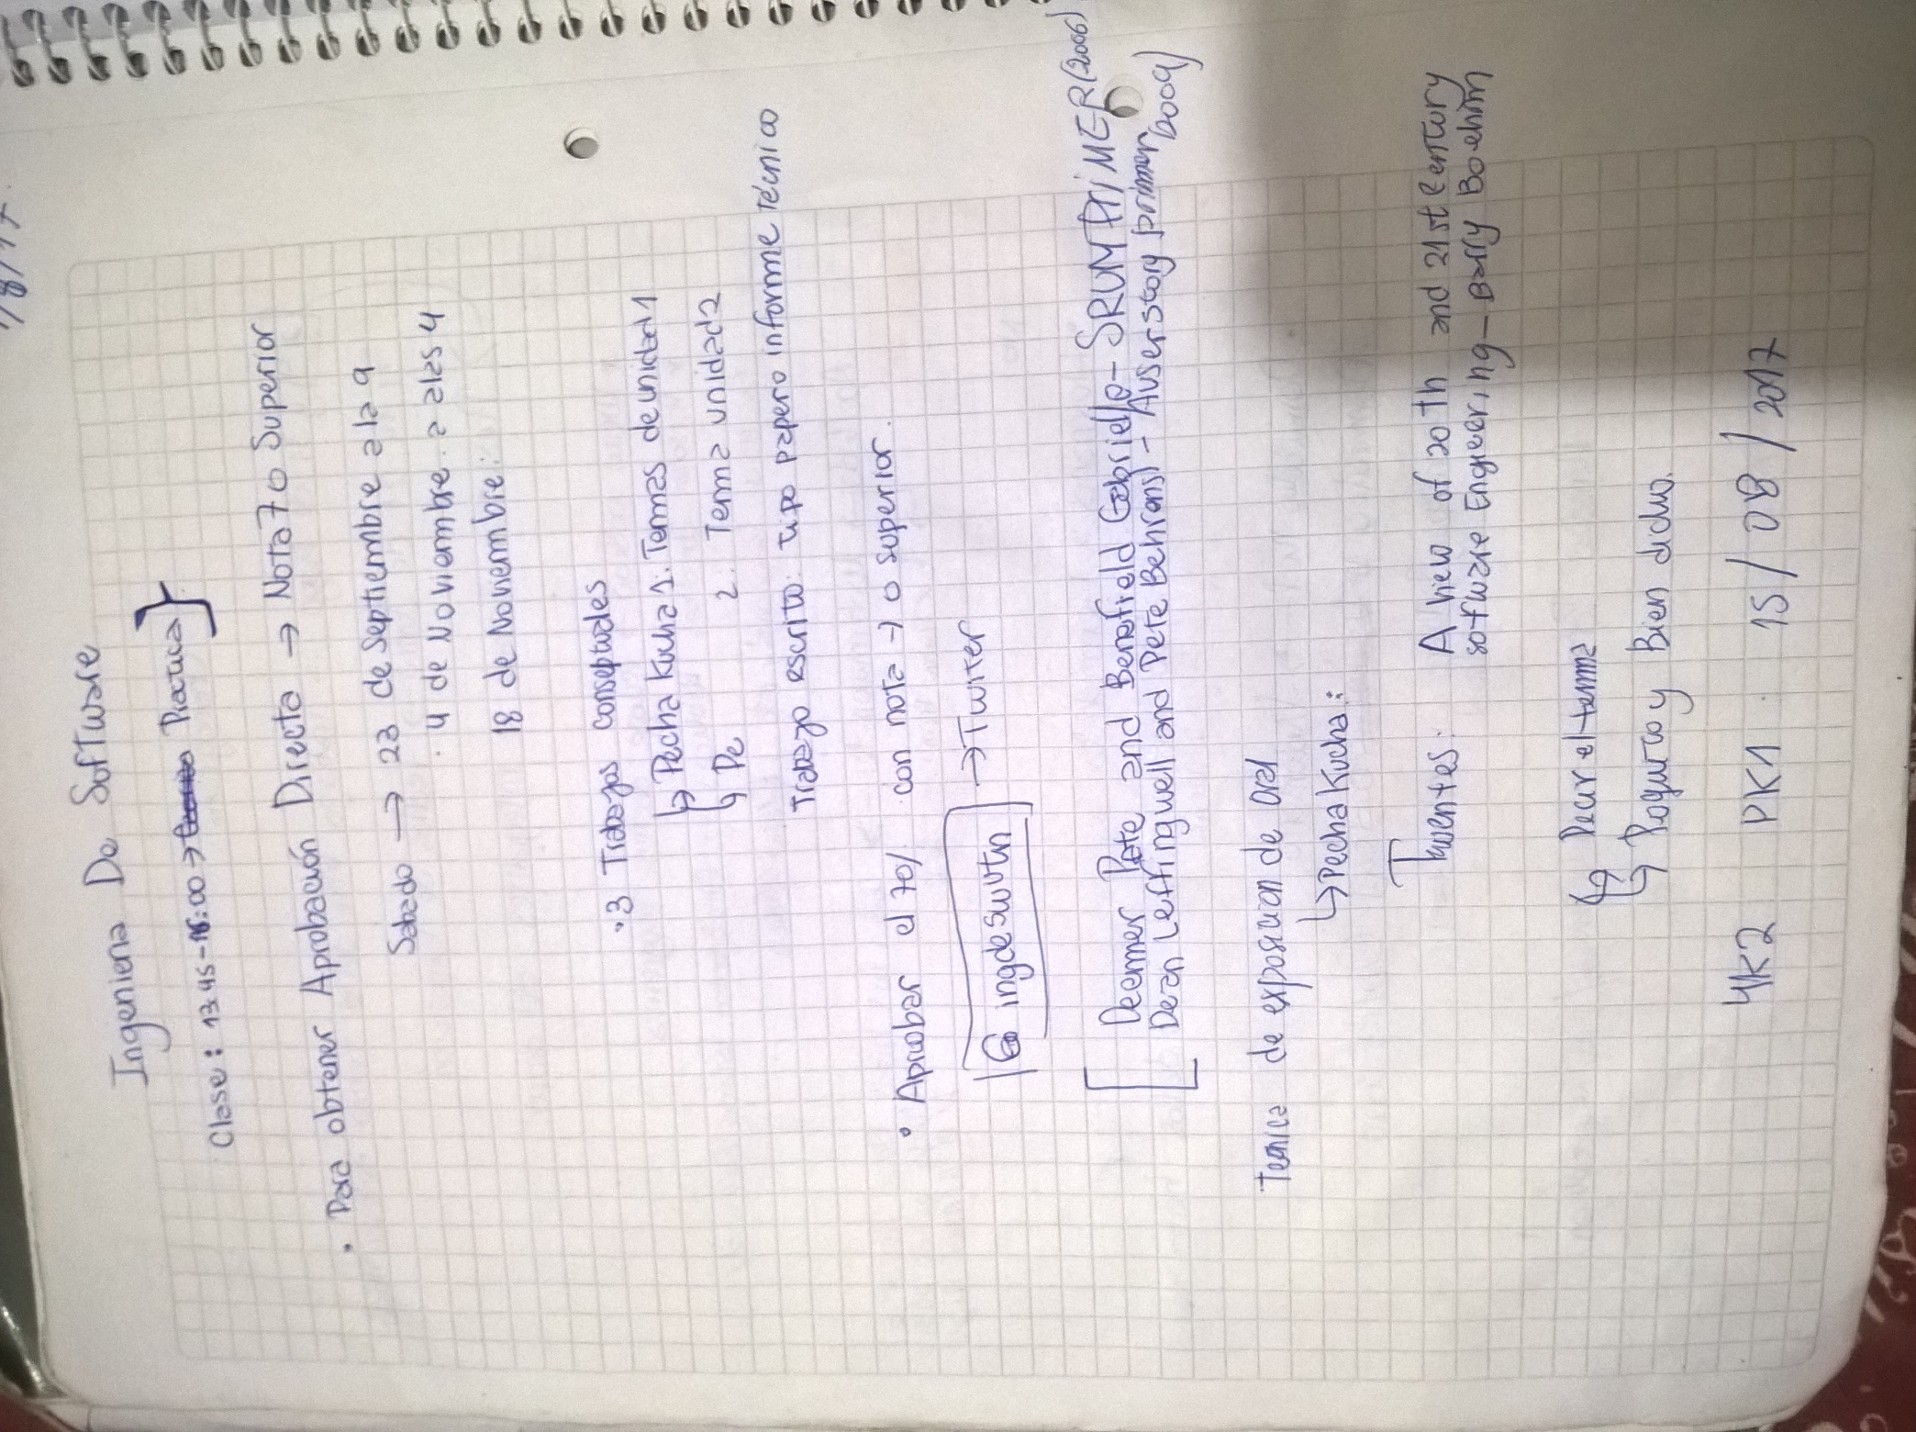 1/8/17
Ingenieria De Software
Clase: 13:45-16:00 → Practica}
• Para obtener Aprobación Directa → Nota 7 o Superior
Sabado → 23 de Septiembre a la 9
. 4 de Noviembre. a alas 4
18 de Noviembre:
• 3 Trabajos conseptuales
↳ Pecha Kucha 1: Temas de unidad 1
↳ Pe 2. Tema unidad 2
Trabajo escrito: tipo paper o informe técnico
• Aprobar el 70% con nota 7 o superior.
@ingdeswutn → Twiter
[ Deemer Pete and Benefield Gabrielle - SRUM PRIMER (2006)
Dean Leffingwell and Pete Behrens) - A user story primer, 2009)
Tecnica de exposicion de oral
↳ Pecha Kucha:
Fuentes: A view of 20th and 21st Century
software Engieering - Barry Boehm
↳ Decir el tema
↳ Poquito y Bien dicho.
4K2 PK1. 15/08/2017